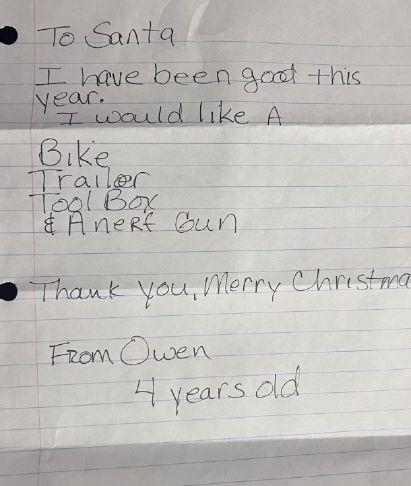 To Santa
I have been good this
year.
I would like A
Bike
Trailer
Tool Box
& A nerf Gun
Thank you, Merry Christma
From Owen
4 years old